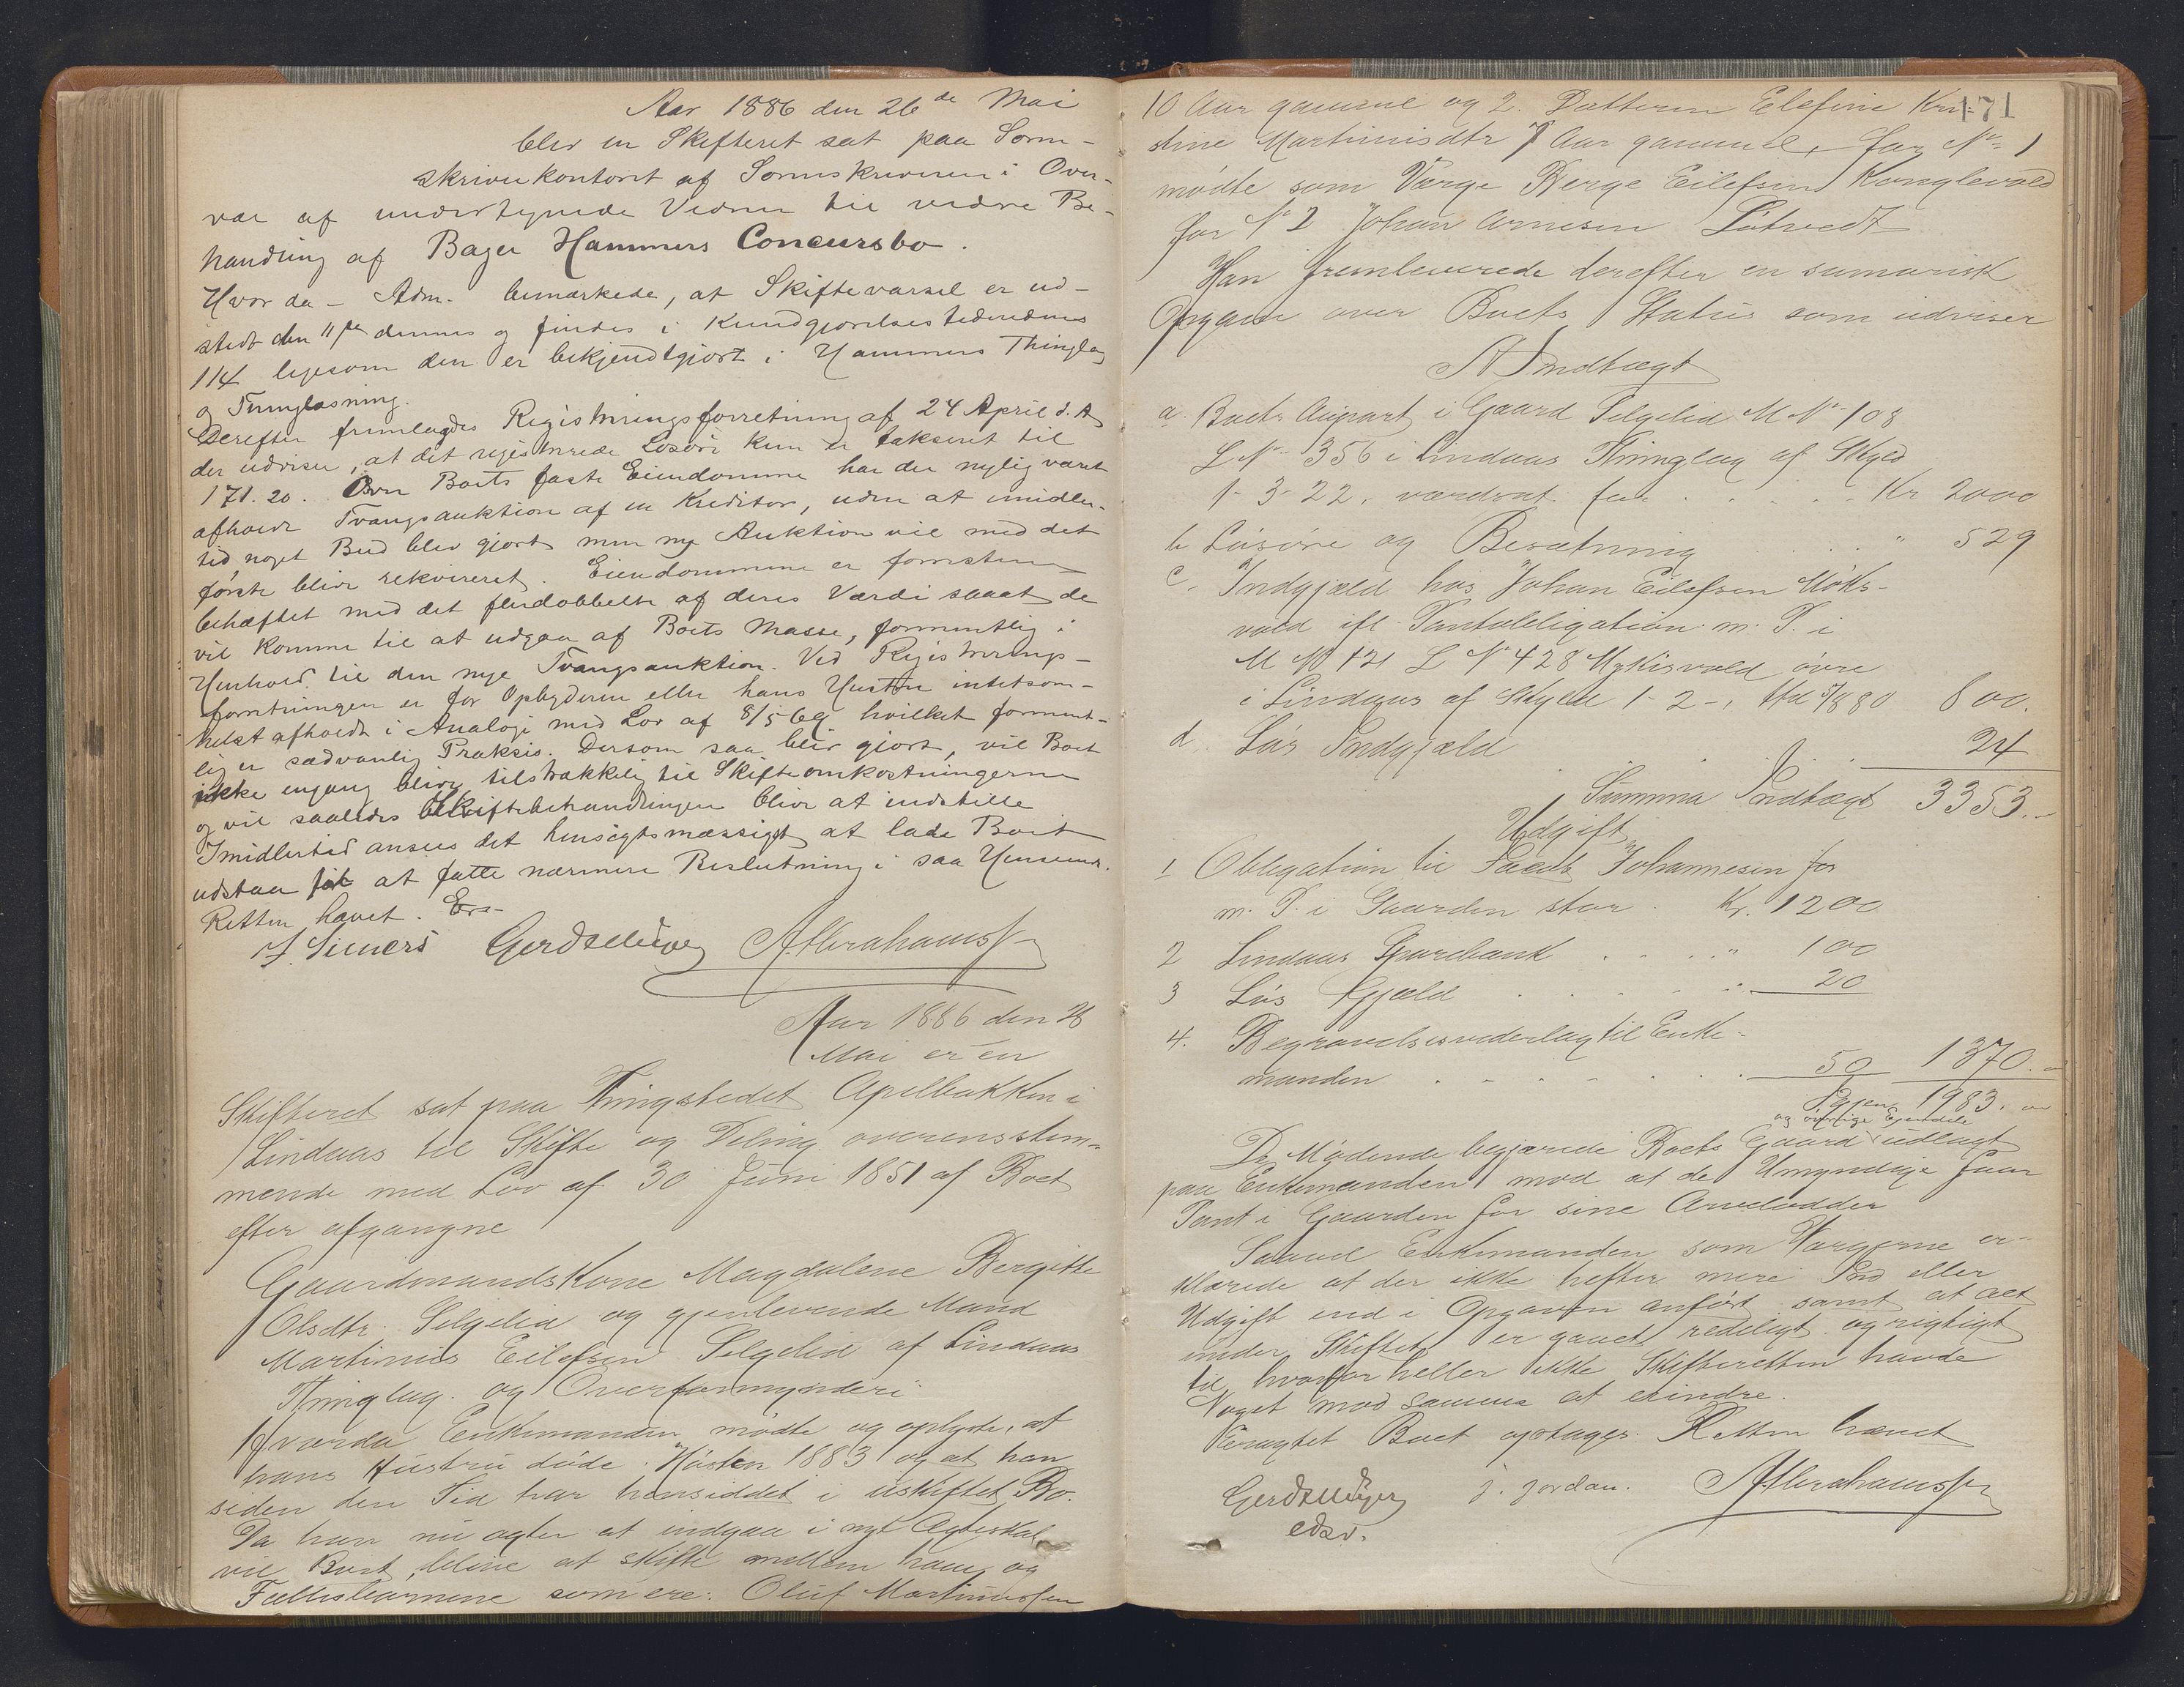 Aar 1886 den 26de Mai
blev en Skifteret sat paa Soren-
skriverkontoret af Sorenskriveren i Over-
vær af undertegnede Vidner til videre Be-
handling af Bager Hammers Concursbo.
Hvor da - Adm. bemærkede, at Skiftevarsel er ud-
stedt den 11te dennes og findes i Kundgjørelsestidendens
114 ligesom den er bekjendtgjort i Hammers Thinglag
og Thinglæsning.
Derefter fremlagdes Registreringsforretning af 24 April d. A
der udviser, at det registrerede Løsøre kun er takseret til
171.20. Over Boets faste Eiendomme har der nylig været
afholdt Tvangsauktion af en Kreditor, uden at imidler-
tid noget Bud blev gjort men ny Auktion vil med det
første blive rekvireret. Eiendommene er forresten
behæftet med det flerdobbelte af deres Værdi saaat de
vil komme til at udgaa af Boets Masse, formentlig i
Henhold til den nye Tvangsauktion. Ved Registrerings-
forretningen er for Opbyderen eller hans Hustru intetsom-
helst afholdt i Analogi med Lov af 8/5 69 hvilket forment-
lig er sædvanlig Praksis. Dersom saa blir gjort, vil Boet
ikke engang blive tilstrækkelig til Skifteomkostningerne
og vil saaledes Skiftebehandlingen blive at indstille
Imidlertid ansees det hensigtsmæssigt at lade Boet
udstaa for at fatte nærmere Beslutning i saa Henseende.
Retten hævet.
Gerdt Meyer A. Abrahamsen
Aar 1886 den 28
Mai er en
Skifteret sat paa Thingstedet Apelbakken i
Lindaas til Skifte og Deling overensstem-
mende med Lov af 30 Juni 1851 af Boet
efter afgangne
Gaardmandskone Magdalene Bergitte
Olsdtr. Selgelid og gjenlevende Mand
Martinius Eilefsen Selgelid af Lindaas
Thinglag og Overformynderi
Hvorda Enkemanden mødte og oplyste, at
hans Hustru døde Høsten 1883 og at han
siden den Tid har hensiddet i uskiftet Bo.
Da han nu agter at indgaa i nyt Ægteskab
vil Boet blive at skifte mellem ham og
Fællesbørnene som ere: Oluf Martinussen
171
10 Aar gammel og 2. Datteren Elefine Kri-
stine Martinisdtr 7 Aar gammel, for No 1
mødte som Værge Berge Eilefsen Konglevold
for No 2 Johan Arnesen Løtvedt
Han fremleverede derefter en sumarisk
Opgave over Boets Status som udviser
A Indtægt
a. Boets Anpart i Gaard Selgelid M No 108
L No 356 i Lindaas Thinglag af Skyld
1-3-22, værdsat for . . . Kr 2000
b Løsøre og Besætning . . . " 529
c. Indgjæld hos Johan Eilefsen
vold ifl. Pantobligation m. P. i
M No 121 L No 428 Mykisvold øvre
i Lindaas af Skyld 1-2-, 80 800.
d Løs Indgjæld . . . 24
Summa Indtægt 3353.-
Udgift
1 Obligation til Johannesen for
m. P. i Gaarden stor . Kr. 1200
2 Lindaas Sparebank . . . " 100
3 Løs Gjæld . . . " 20
4. Begravelsesvederlag til Enke-
manden . . . 50 1370.-
Igjen 1983.-
og øvrige Eiendele
De Mødende begjærede Boets Gaard udlagt
paa Enkemanden mod at de Umyndige faar
Pant i Gaarden for sine Arvelodder
Saavel Enkemanden som Værgerne er-
klærede at der ikke hefter mere Ind eller
Udgift end i Opgaven anført samt at alt
under Skiftet er gaaet redeligt og rigtigt
til, hvorfor heller ikke Skifteretten havde
Noget mod samme at erindre.
Boet optages. Retten hævet
Gerdt Meyer J. Jordan. A. Abrahamsen
edsv.